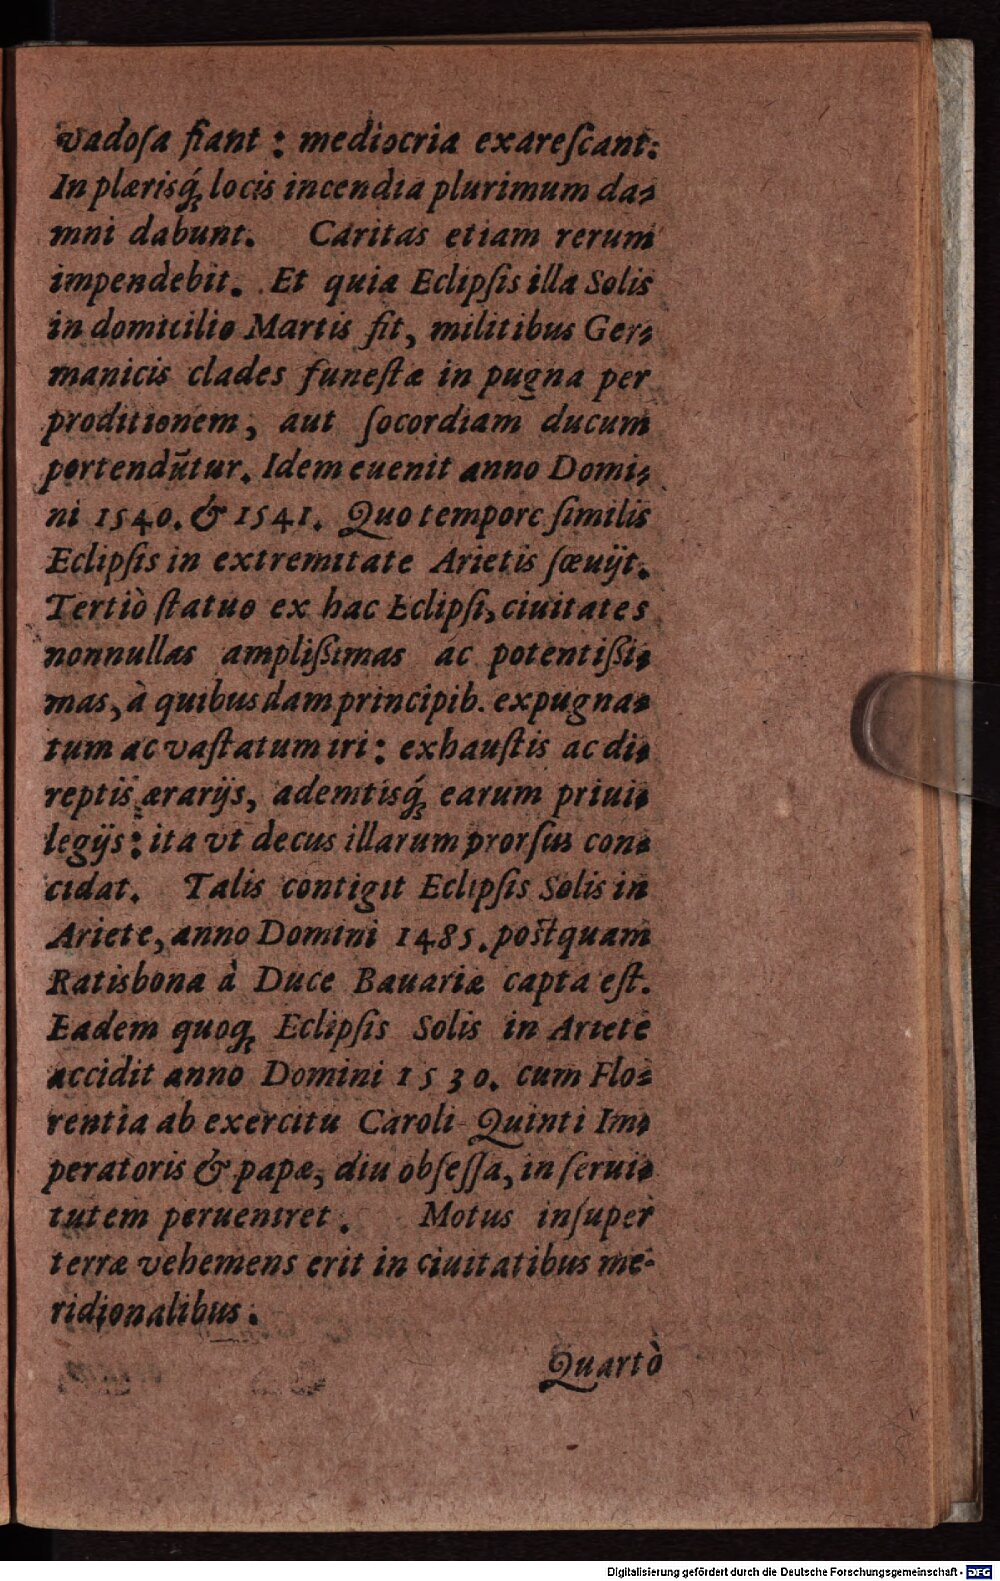 vadoſa fiant : mediocria exareſcant:
In plærisq́ꝫ locis incendia plurimum da⸗
mni dabunt. Caritas etiam rerum
impendebit. Et quia Eclipſis illa Solis
in domicilio Martis fit, militibus Ger⸗
manicis clades funeſtæ in pugna per
proditionem, aut ſocordiam ducum
portendūtur. Idem euenit anno Domi⸗
ni 1540. & 1541. Quo tempore ſimilis
Eclipſis in extremitate Arietis ſæuijt.
Tertiò ſtatuo ex hac Eclipſi, ciuitates
nonnullas ampliſsimas ac potentiſsi⸗
mas, à quibusdam principib. expugna⸗
tum ac vaſtatum iri: exhauſtis ac di⸗
reptis ærarijs, ademtisq́ꝫ earum priui⸗
legijs: ita vt decus illarum prorſus con⸗
cidat. Talis contigit Eclipſis Solis in
Ariete, anno Domini 1485. poſtquam
Ratisbona à Duce Bauariæ capta eſt.
Eadem quoqꝫ Eclipſis Solis in Ariete
accidit anno Domini 1530. cum Flo⸗
rentia ab exercitu Caroli Quinti Im⸗
peratoris & papæ, diu obſeſſa, in ſerui⸗
tutem perueniret. Motus inſuper
terræ vehemens erit in ciuitatibus me-
ridionalibus.
Quartò
Digitalisierung gefördert durch die Deutsche Forschungsgemeinschaft - DFG